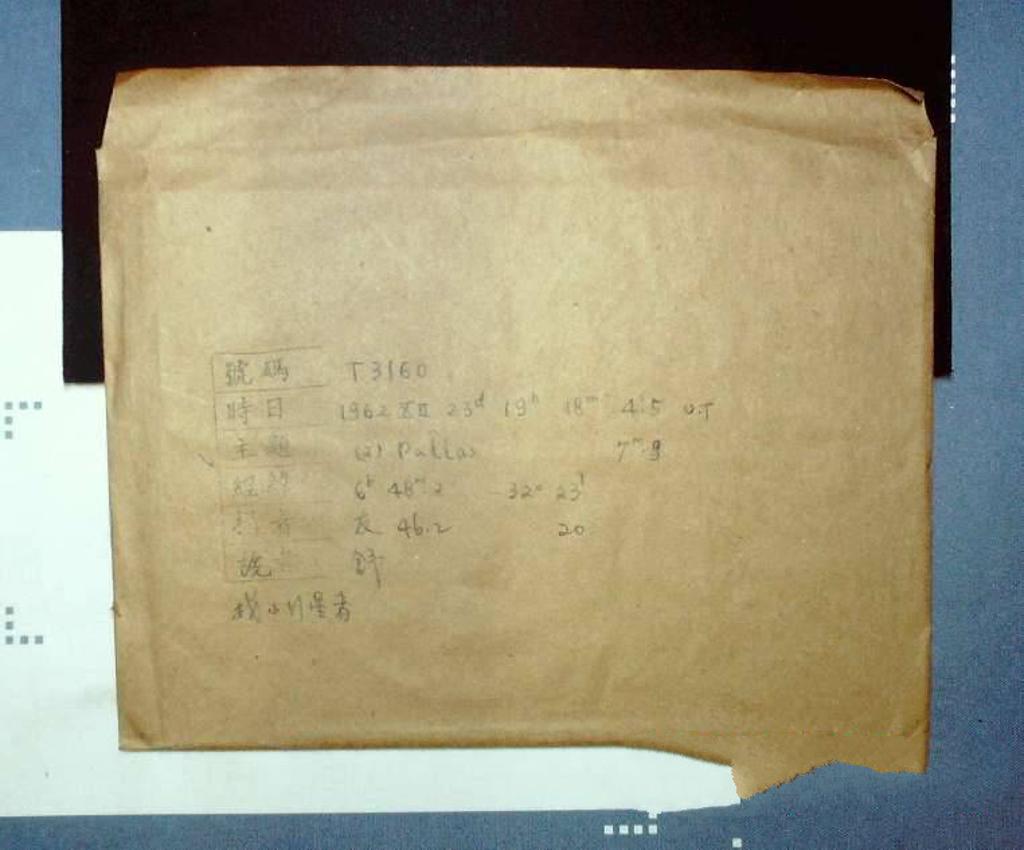 號碼 T3160
時日 1962 XII 23d 19h 18m 4s.5 U.T
主題 (2) Pallas 7m.9
6h 48m.2 -32° 23'
46.2 20
說
找小行星者